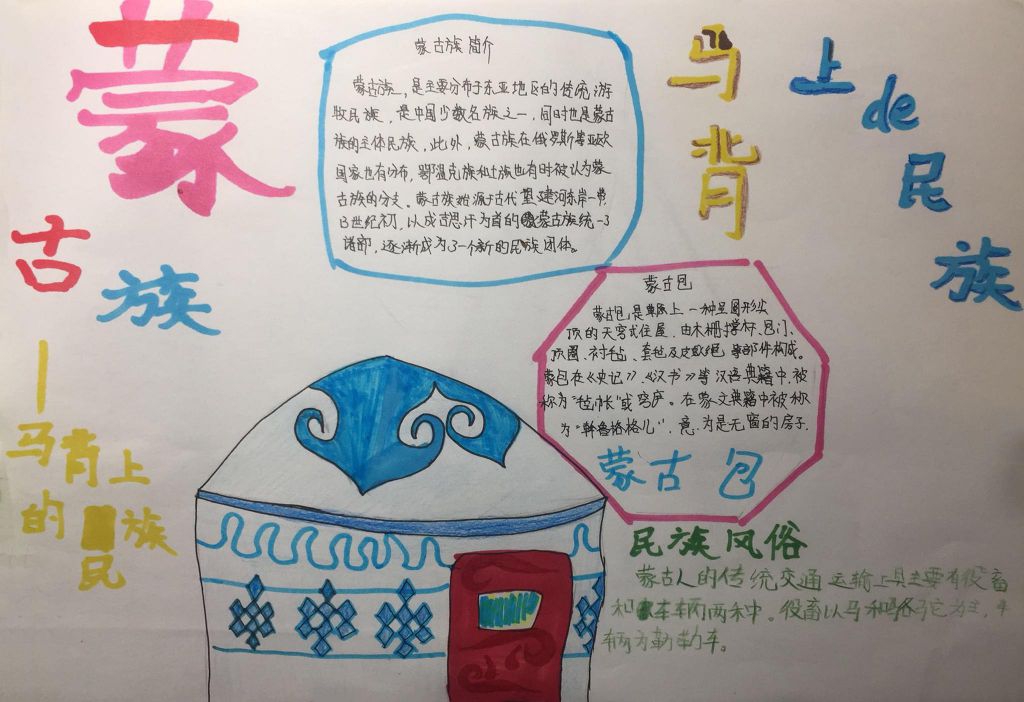 蒙
古
族
—
马背上
的民族
蒙古族简介
蒙古族，是主要分布于东亚地区的传统游
牧民族，是中国少数名族之一，同时也是蒙古
族的主体民族，此外，蒙古族在俄罗斯等亚欧
国家也有分布，鄂温克族和土族也有时被认为蒙
古族的分支。蒙古族始源于古代望建河东岸一带
13世纪初，以成吉思汗为首的蒙古族统一了
诸部，逐渐成为了一个新的民族团体。
马
背
上
de
民
族
蒙古包
蒙古包是草原上一种呈圆形尖
顶的天穹式住屋，由木栅撑杆、包门、
顶圈、衬毡、套毡及皮绳 等部件构成。
蒙包在《史记》、《汉书》等汉语典籍中，被
称为“毡帐”或穹庐”。在蒙文典籍中被称
为“斡鲁格格儿”，意为是无窗的房子.
蒙古包
民族风俗
蒙古人的传统交通运输工具主要有役畜
和车辆两种。役畜以马和骆驼为主，车
辆为勒勒车。